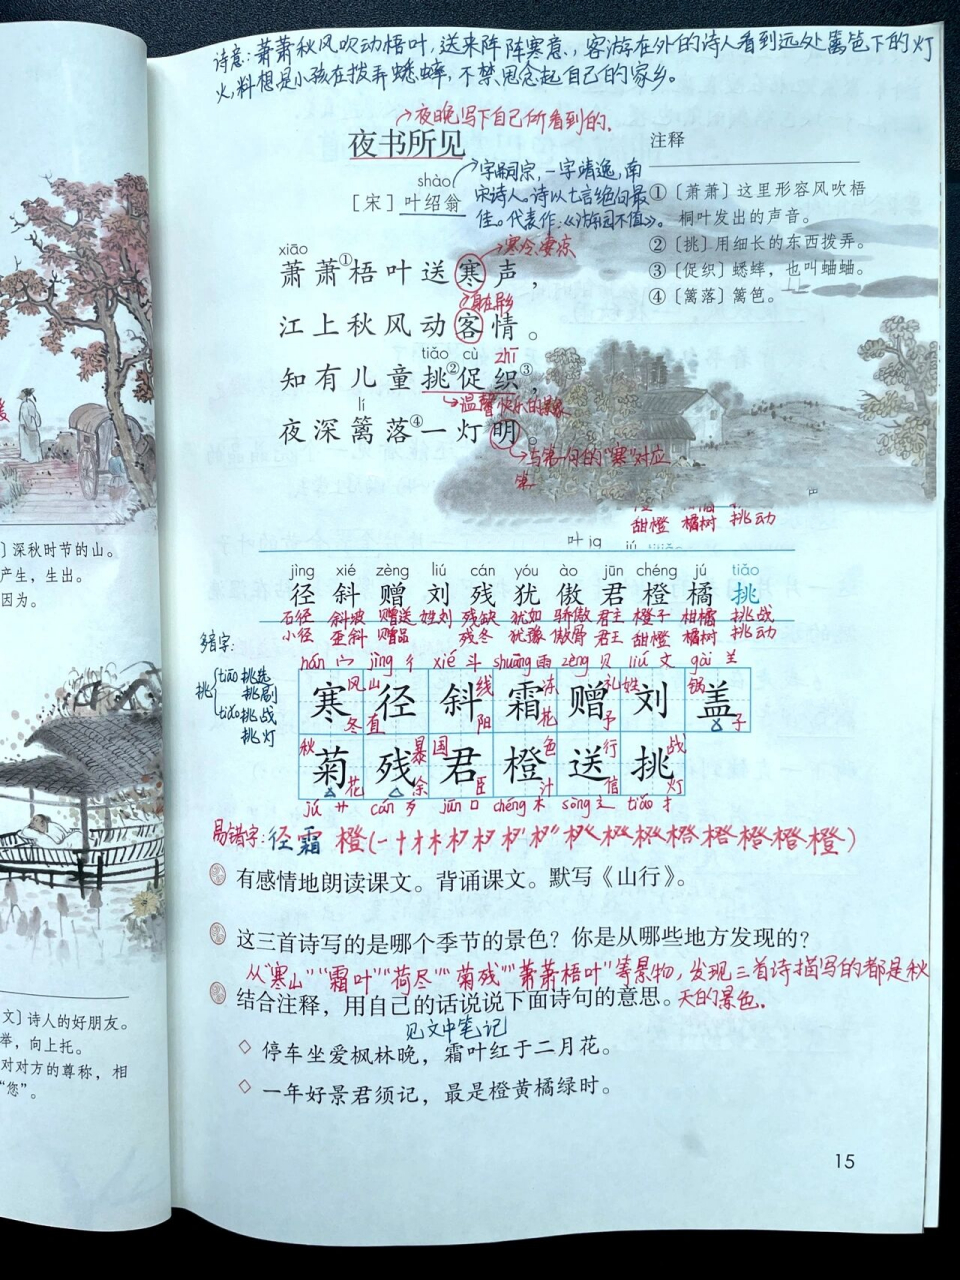 诗意：萧萧秋风吹动梧叶，送来阵阵寒意，客游在外的诗人看到远处篱笆下的灯
火，料想是小孩在拨弄蟋蟀，不禁思念起自己的家乡。
→夜晚写下自己所看到的。
夜书所见
shào
［宋］叶绍翁
字嗣宗，一字靖逸，南
宋诗人。诗以七言绝句最
佳。代表作：《游园不值》。
注释
①〔萧萧〕这里形容风吹梧
桐叶发出的声音。
②〔挑〕用细长的东西拨弄。
③〔促织〕蟋蟀，也叫蛐蛐。
④〔篱落〕篱笆。
→寒冷、凄凉
xiāo
萧萧①梧叶送寒声，
身在异乡
江上秋风动客情。
tiǎo cù zhī
知有儿童挑②促织③，
→温馨快乐的景象
lí
夜深篱落④一灯明。
→与第一句的“寒”对应
甜橙 橘树 挑动
jìng xié zèng liú cán yóu ào jūn chéng jú tiǎo
径 斜 赠 刘 残 犹 傲 君 橙 橘 挑
石径 斜坡 赠送 姓刘 残缺 犹如 骄傲 君主 橙子 柑橘 挑战
小径 歪斜 赠品 残冬 犹豫 傲骨 君王 甜橙 橘树 挑动
多音字：
挑
tiāo 挑选
挑剔
tiǎo 挑战
挑灯
hán 宀 jìng 彳 xié 斗 shuāng 雨 zèng 贝 liú 文 gài 羊
风 山 线 冻 礼 姓 锅
寒 径 斜 霜 赠 刘 盖
冬 直 阳 花 予 子
秋 暴 国 色 行 战
菊 残 君 橙 送 挑
花 余 臣 汁 信 灯
jú 艹 cán 歹 jūn 口 chéng 木 sòng 辶 tiǎo 扌
易错字：径 霜 橙
有感情地朗读课文。背诵课文。默写《山行》。
这三首诗写的是哪个季节的景色？你是从哪些地方发现的？
从“寒山”“霜叶”“荷尽”“菊残”“萧萧梧叶”等景物，发现三首诗描写的都是秋
天的景色.
结合注释，用自己的话说说下面诗句的意思。
见文中笔记
停车坐爱枫林晚，霜叶红于二月花。
一年好景君须记，最是橙黄橘绿时。
15
〕深秋时节的山。
产生，生出。
因为。
文〕诗人的好朋友。
举，向上托。
对对方的尊称，相
“您”。